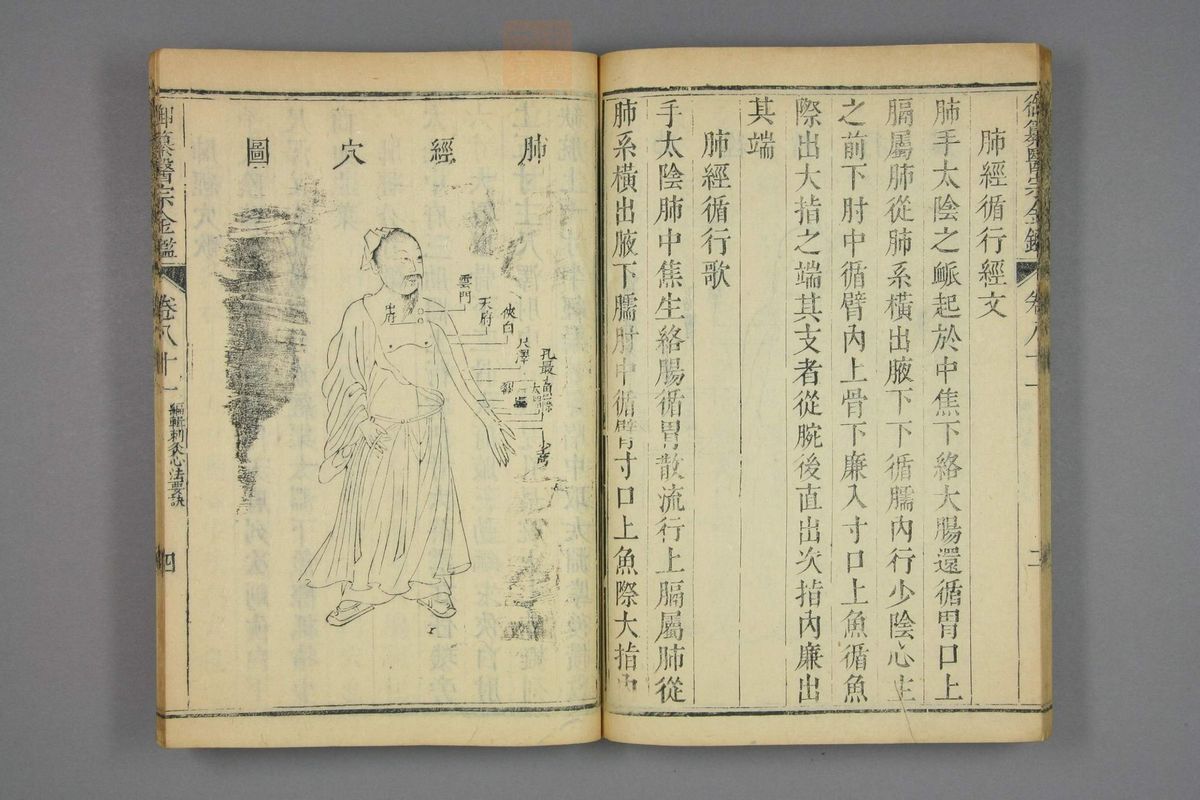 御纂醫宗金鑑
卷八十一
肺經循行經文
肺手太陰之脈起於中焦下絡大腸還循胃口上
膈屬肺從肺系橫出腋下下循臑內行少陰心主
之前下肘中循臂內上骨下廉入寸口上魚循魚
際出大指之端其支者從腕後直出次指內廉出
其端
肺經循行歌
手太陰肺中焦生絡腸循胃散流行上膈屬肺從
肺系橫出腋下臑肘中循臂寸口上魚際大指內
肺經穴圖
雲門
天府
俠白
尺澤
孔最
中府
少商
御纂醫宗金鑑
卷八十一
編輯刺灸心法要訣
四